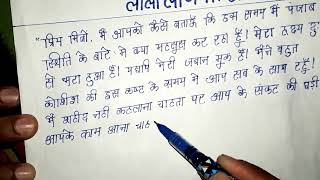 "प्रिय मित्रों, मैं आपको कैसे बताऊँ कि इस समय मैं पंजाब
स्थिति के बारे में क्या महसूस कर रहा हूँ। मेरा हृदय दुः
से भरा हुआ है। यद्यपि मेरी जबान मूक है। मैंने बहुत
कोशिश की इस कष्ट के समय में आप सब के साथ रहूँ।
मैं शहीद नहीं कहलाना चाहता पर आप के संकट की घड़ी
आपके काम आना चाह